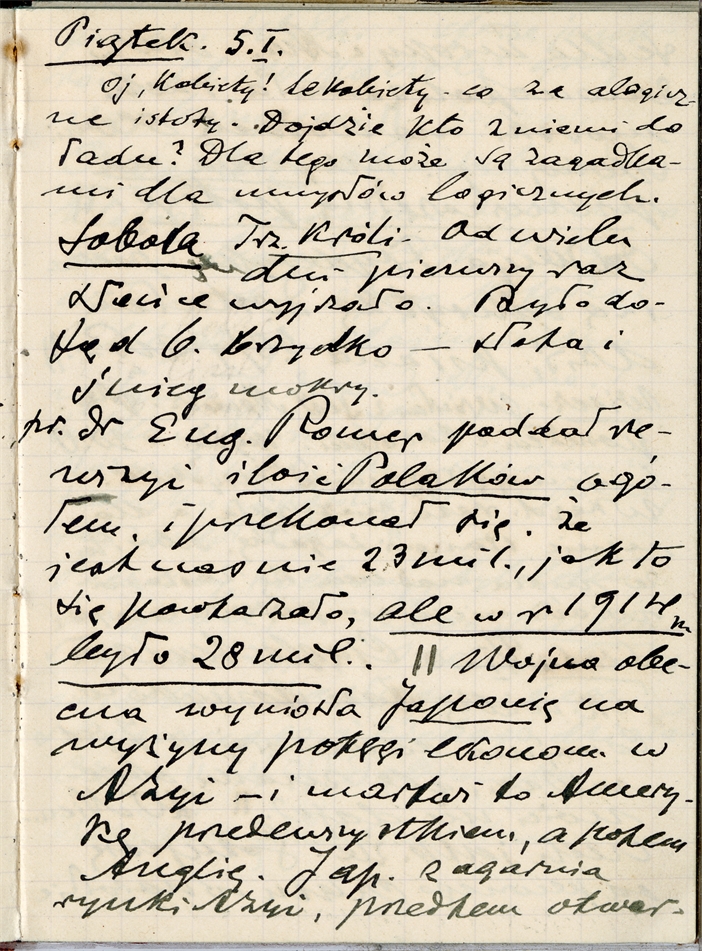 Piątek. 5.I.
Oj, kobiety! te kobiety - co za alogicz-
ne istoty. Dojdzie kto z niemi do
ładu? Dla tego może są zagadka-
mi dla umysłów logicznych.
Sobota Trz. Króli. Od wielu
dni pierwszy raz
słońce wyjrzało. Było do-
tąd b. brzydko — słota i
śnieg mokry.
pr. dr Eug. Romer poddał re-
wizyi ilość Polaków ogó-
łem. i przekonał się. że
jest nas nie 23 mil., jak to
się powtarzało, ale w r 1914
było 28 mil.. || Wojna obe-
cna wyniosła Japonię na
wyżyny potęgi ekonom. w
Azyi - i martwi to Amery-
kę przedewszystkiem, a potem
Anglię. Jap. zagarnia
rynki Azyi, przedtem otwar-